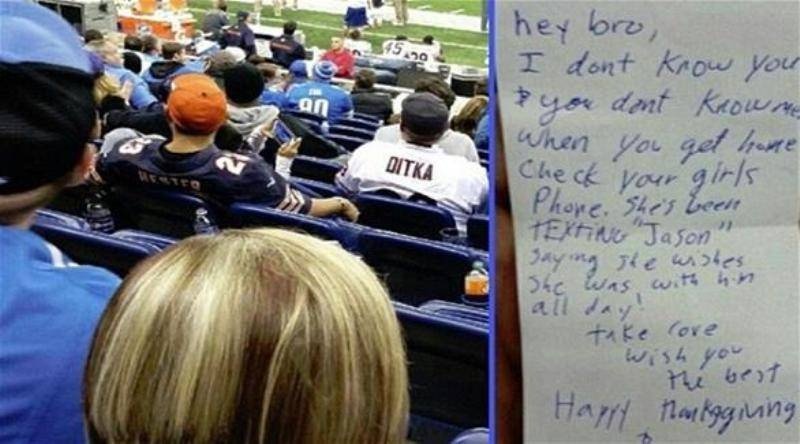 45
90
HESTER
2
DITKA
hey bro,
I dont know you
& you dont know me
when you get home
Check your girls
Phone. She's been
TEXTING "Jason"
Saying she wishes
She was with him
all day!
take care
wish you
the best
Happy Thanksgiving